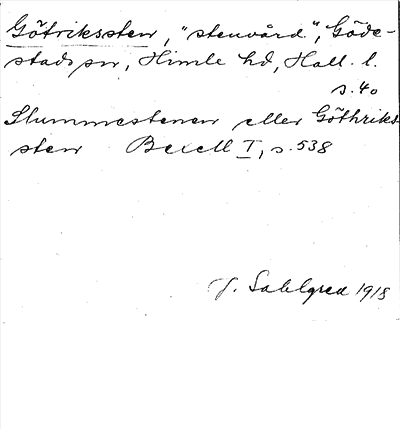 Götrikssten, "stenvård", Göde-
stads sn, Himle hd, Hall. l.
s. 40
Slummestenen eller Göthriks
sten Bexell I, s. 538
J. Sahlgren 1918